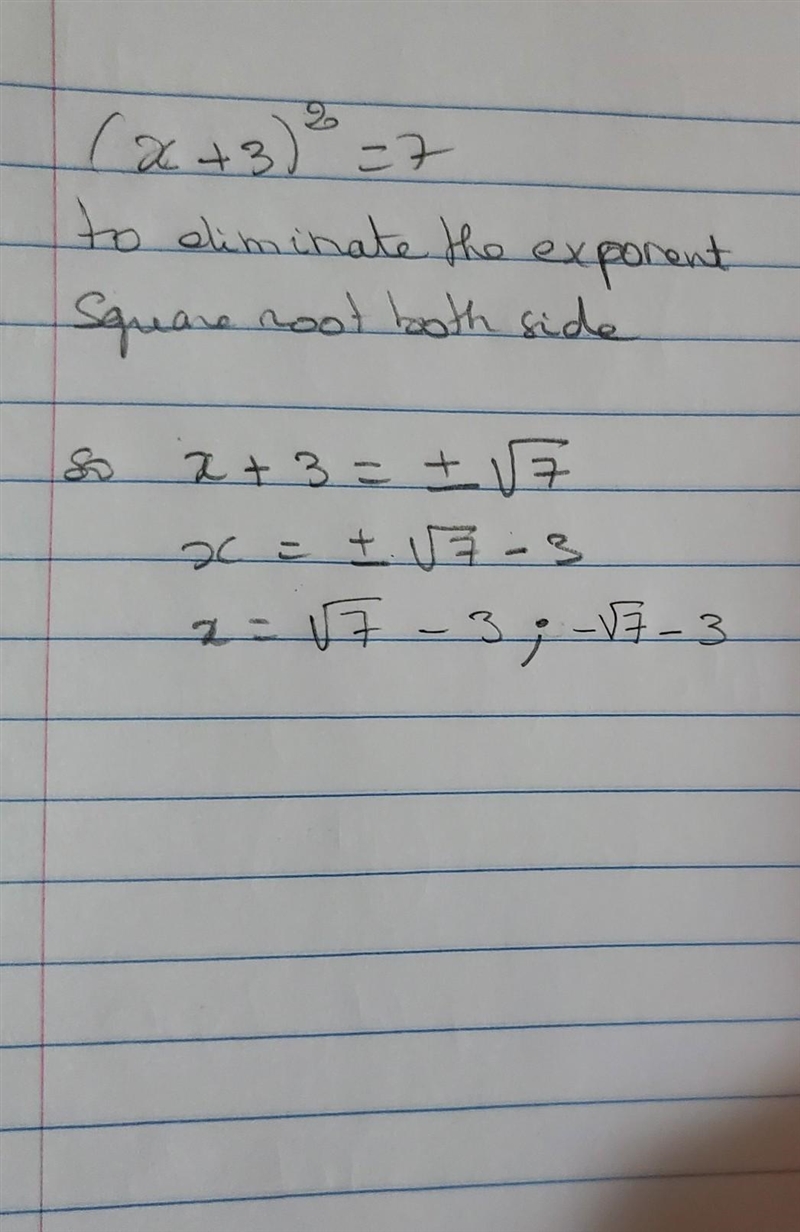 (x+3)² = 7
to eliminate the exponent
Square root both side
so x + 3 = ± √7
x = ± √7 - 3
x = √7 - 3 ; -√7 - 3